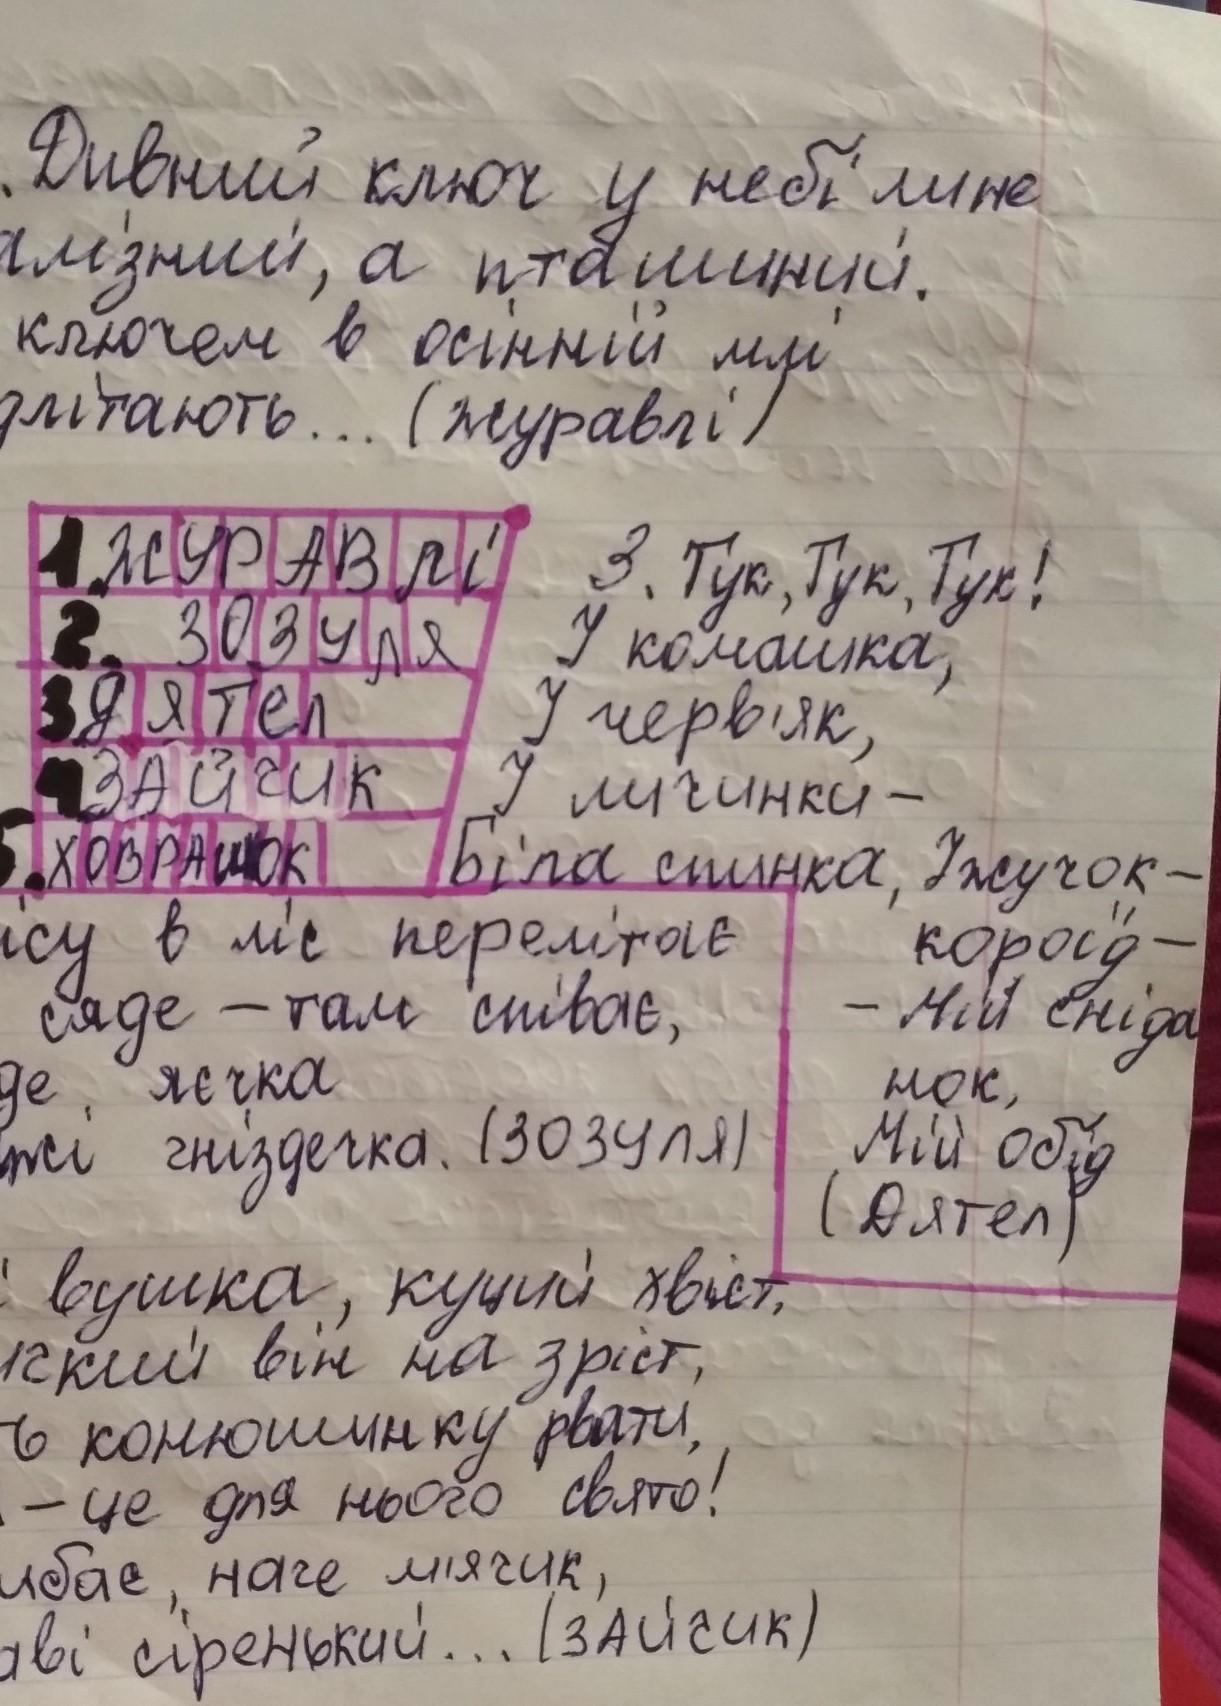 . Дивний ключ у небі лине
алізний, а пташиний.
ключем в осінній млі
длітають... (журавлі)
1. ЖУРАВЛІ
2. ЗОЗУЛЯ
3 ДЯТЕЛ
4 ЗАЙЧИК
5. ХОВРАШОК
3. Тук, Тук, Тук!
І комашка,
І черв'як,
І личинки –
Біла спинка, І жучок –
короїд –
– Мій сніда
нок,
Мій обід
(Дятел)
ісу в ліс перелітає
сяде – там співає,
де, яєчка
жі гніздечка. (ЗОЗУЛЯ)
і вушка, куций хвіст,
ички́й він на зріст,
ть конюшинку рвати,
– це для нього свято!
ибає, наче м'ячик,
аві сіренький... (ЗАЙЧИК)